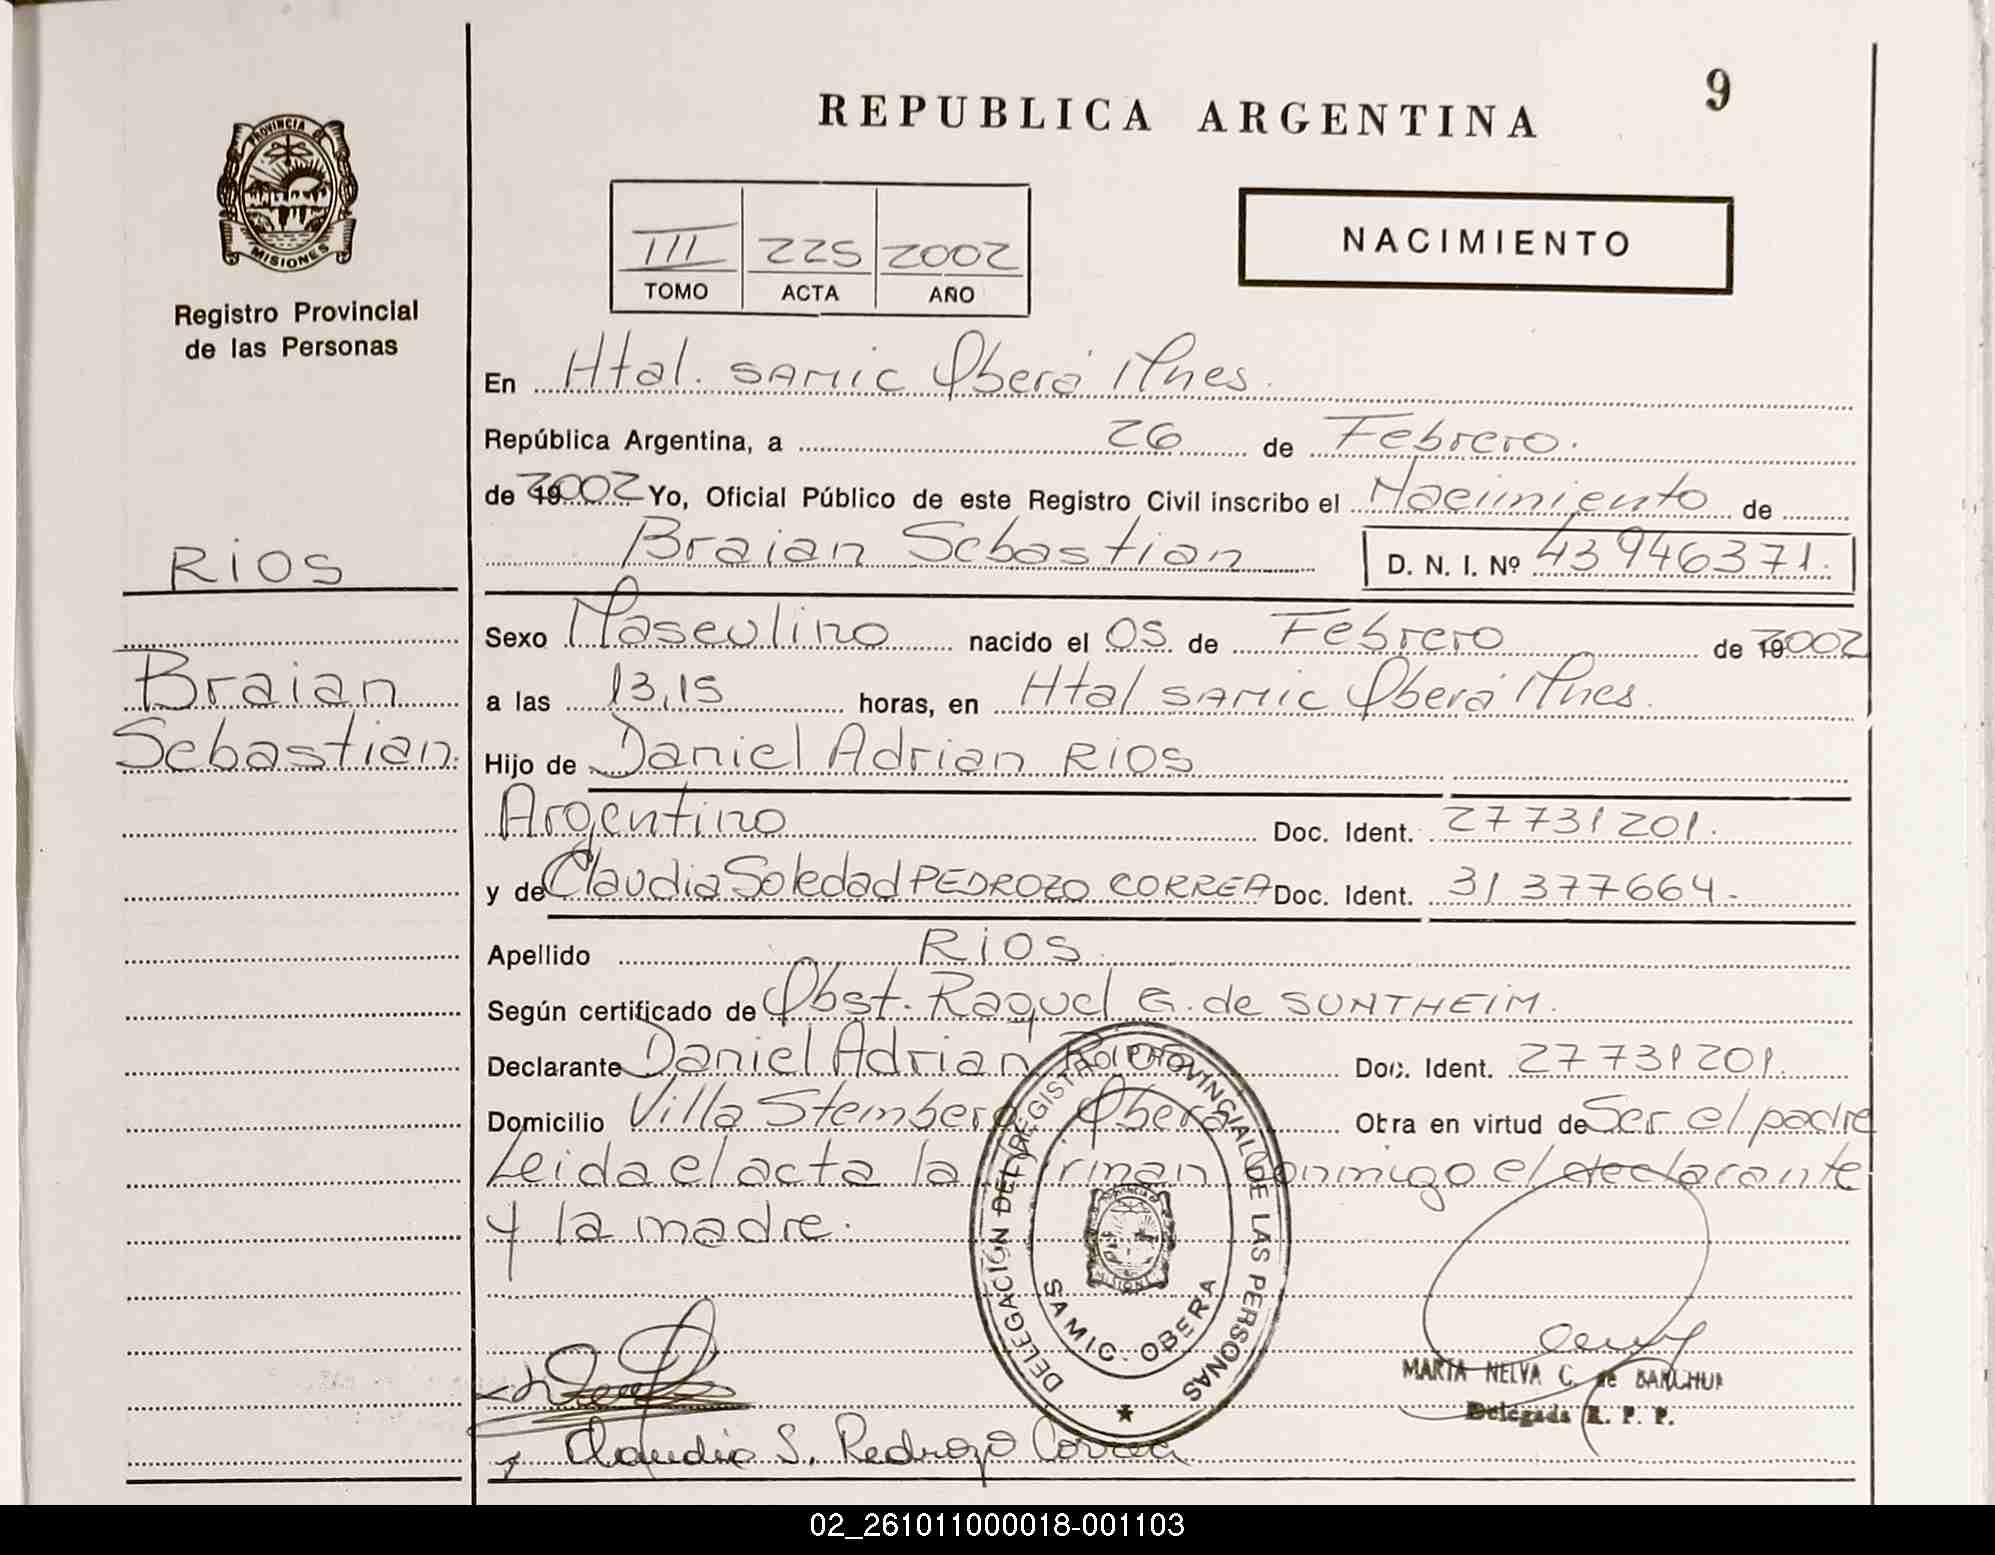 9
REPUBLICA ARGENTINA
PROVINCIA DE
MISIONES
Registro Provincial
de las Personas
III 225 2002
TOMO ACTA AÑO
NACIMIENTO
En Htal. SAMIC Oberá Mnes.
República Argentina, a 26 de Febrero.
de 2002 Yo, Oficial Público de este Registro Civil inscribo el Nacimiento de
Braian Sebastian D. N. I. Nº 43946371.
RIOS
Braian
Sebastian.
Sexo Masculino nacido el 05 de Febrero de 2002
a las 13,15 horas, en Htal SAMIC Oberá Mnes.
Hijo de Daniel Adrian RIOS
Argentino Doc. Ident. 27731201.
y de Claudia Soledad PEDROZO CORREA Doc. Ident. 31377664.
Apellido RIOS.
Según certificado de Obst. Raquel G. de SUNTHEIM.
Declarante Daniel Adrian Doc. Ident. 27731201.
Domicilio Villa Stemberg Oberá Obra en virtud de Ser el padre
Leida el acta la firman conmigo el declarante
y la madre.
DELEGACION DEL REGISTRO PROVINCIAL DE LAS PERSONAS
SAMIC - OBERA
MARTA NELVA C. de
Delegada R. P. P.
Claudia S. Pedrozo Correa
02_261011000018-001103